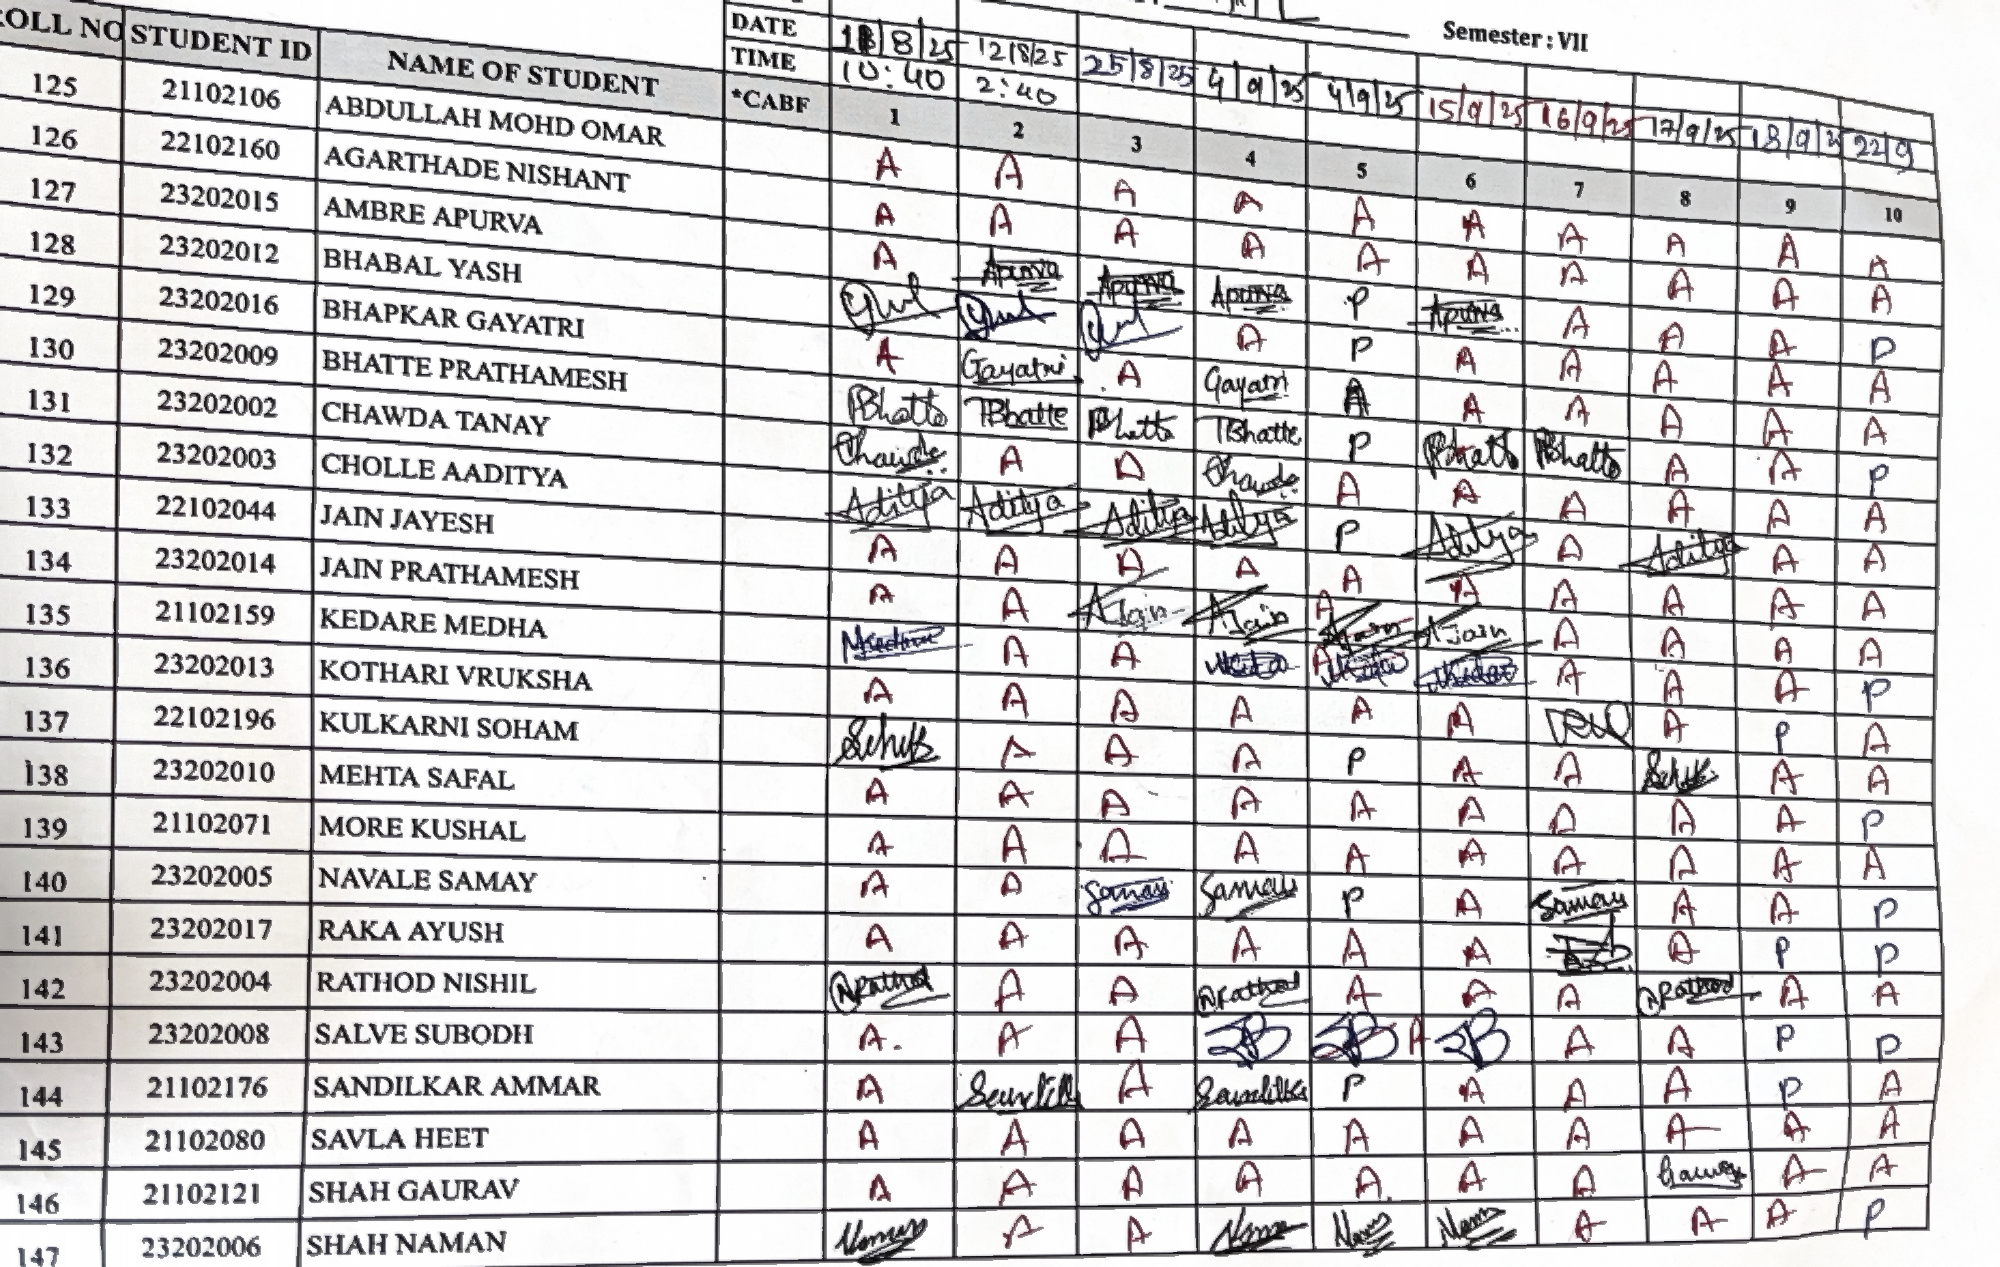 Semester : VII
DATE 18/8/25 12/8/25 25/8/25 4/9/25 4/9/25 15/9/25 16/9/25 17/9/25 18/9/2 22/9
TIME 10:40 2:40
ROLL NO STUDENT ID NAME OF STUDENT *CABF 1 2 3 4 5 6 7 8 9 10
125 21102106 ABDULLAH MOHD OMAR A A A A A A A A A A
126 22102160 AGARTHADE NISHANT A A A A A A A A A A
127 23202015 AMBRE APURVA A Apurva Apurva Apurva P Apurva A A A P
128 23202012 BHABAL YASH A P A A A A A
129 23202016 BHAPKAR GAYATRI A Gayatri A Gayatri A A A A A A
130 23202009 BHATTE PRATHAMESH PBhatte PBhatte PBhatte PBhatte P PBhatte PBhatte A A P
131 23202002 CHAWDA TANAY Chawda A A Chawda A A A A A A
132 23202003 CHOLLE AADITYA Aditya Aditya Aditya Aditya P Aditya A Aditya A A
133 22102044 JAIN JAYESH A A A A A A A A A A
134 23202014 JAIN PRATHAMESH A A AJain AJain A AJain AJain A A A A
135 21102159 KEDARE MEDHA A A A A A A P
136 23202013 KOTHARI VRUKSHA A A A A A A A P A
137 22102196 KULKARNI SOHAM A A A P A A A A
138 23202010 MEHTA SAFAL A A A A A A A A A P
139 21102071 MORE KUSHAL A A A A A A A A A A
140 23202005 NAVALE SAMAY A A Samay Samay P A Samay A A P
141 23202017 RAKA AYUSH A A A A A A A P P
142 23202004 RATHOD NISHIL NRathod A A NRathod A A A NRathod A A
143 23202008 SALVE SUBODH A. A A SB SB A SB A A P P
144 21102176 SANDILKAR AMMAR A A Sandilkar P A A A P A
145 21102080 SAVLA HEET A A A A A A A A A A
146 21102121 SHAH GAURAV A A A A A. A A Gaurav A A
147 23202006 SHAH NAMAN Naman A A Naman Naman Naman A A A P